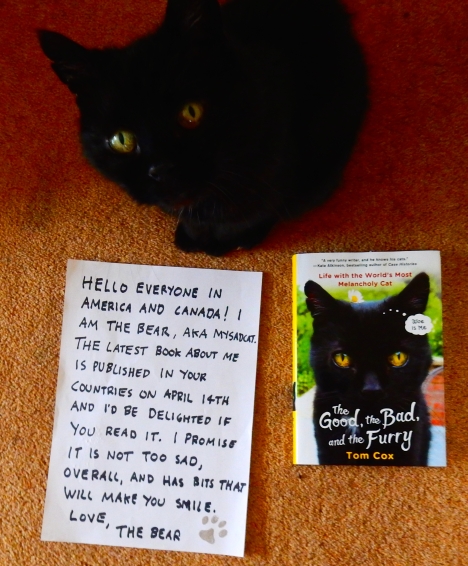 HELLO EVERYONE IN
AMERICA AND CANADA! I
AM THE BEAR, AKA MYSADCAT.
THE LATEST BOOK ABOUT ME
IS PUBLISHED IN YOUR
COUNTRIES ON APRIL 14TH
AND I'D BE DELIGHTED IF
YOU READ IT. I PROMISE
IT IS NOT TOO SAD,
OVERALL, AND HAS BITS THAT
WILL MAKE YOU SMILE.
LOVE,
THE BEAR
"A very funny writer, and he knows his cats."
—Kate Atkinson, bestselling author of
Life with the World's Most
Melancholy Cat
Woe
is me
The
Good, the Bad,
and the Furry
Tom Cox